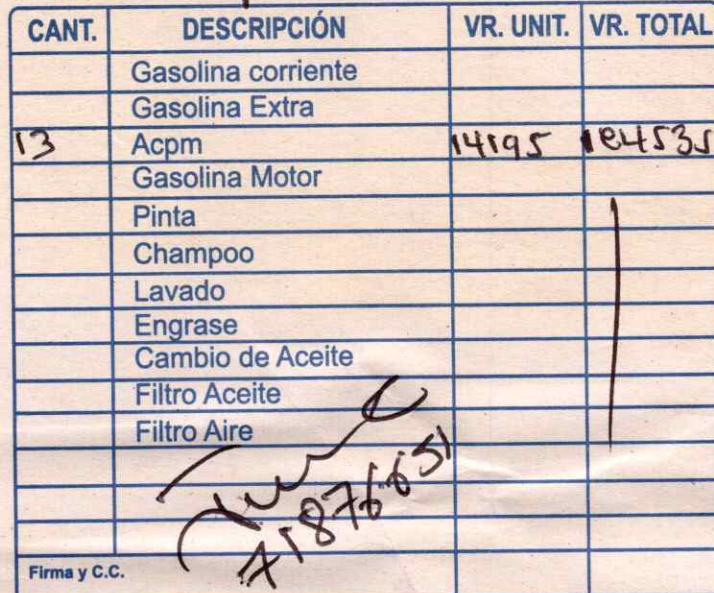 CANT. DESCRIPCIÓN VR. UNIT. VR. TOTAL
Gasolina corriente
Gasolina Extra
13 Acpm 14195 184535
Gasolina Motor
Pinta
Champoo
Lavado
Engrase
Cambio de Aceite
Filtro Aceite
Filtro Aire
Firma y C.C.